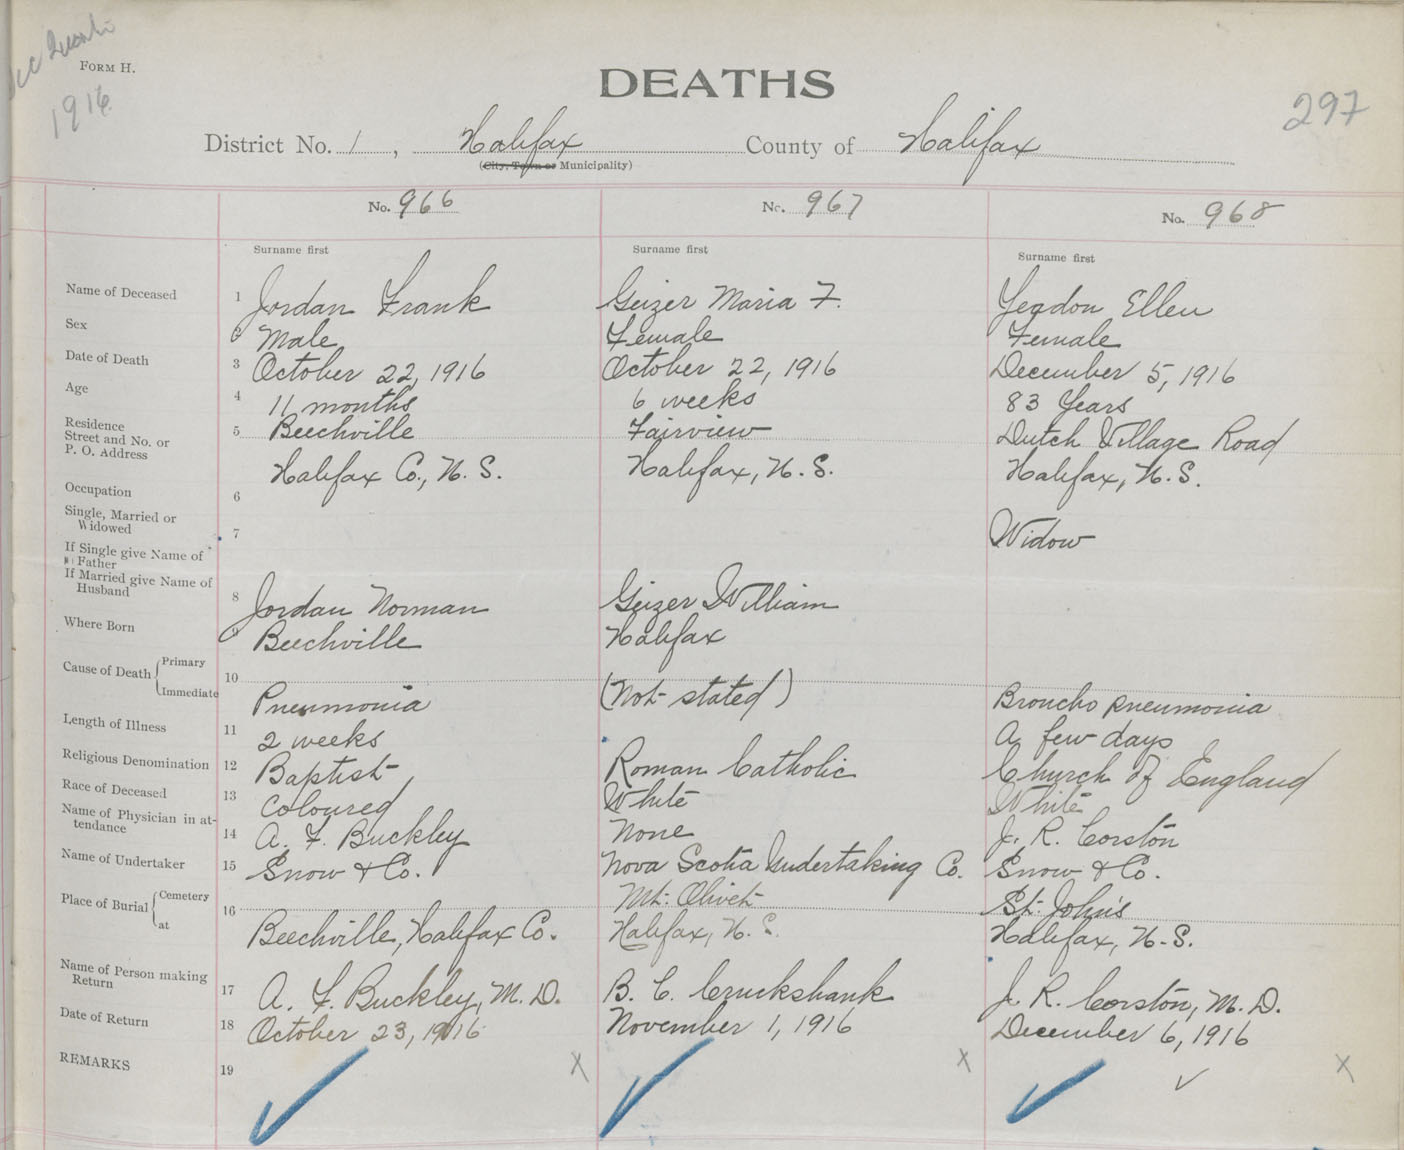 Dec Quarter
1916
FORM H.
DEATHS
297
District No. 1, Halifax County of Halifax
(City, Town or Municipality)
No. 966 No. 967 No. 968
Surname first Surname first Surname first
Name of Deceased 1 Jordan Frank Geizer Maria F. Yeadon Ellen
Sex 2 Male Female Female
Date of Death 3 October 22, 1916 October 22, 1916 December 5, 1916
Age 4 11 months 6 weeks 83 Years
Residence
Street and No. or 5 Beechville Fairview Dutch Village Road
P. O. Address Halifax Co., N. S. Halifax, N. S. Halifax, N. S.
Occupation 6
Single, Married or
Widowed 7 Widow
If Single give Name of
Father
If Married give Name of
Husband 8 Jordan Norman Geizer William
Where Born 9 Beechville Halifax
Cause of Death { Primary
Immediate 10 Pneumonia (Not stated) Broncho pneumonia
Length of Illness 11 2 weeks A few days
Religious Denomination 12 Baptist Roman Catholic Church of England
Race of Deceased 13 Coloured White White
Name of Physician in at-
tendance 14 A. F. Buckley None J. R. Corston
Name of Undertaker 15 Snow & Co. Nova Scotia Undertaking Co. Snow & Co.
Place of Burial { Cemetery 16 Mt. Olivet St. John's
at Beechville, Halifax Co. Halifax, N. S. Halifax, N. S.
Name of Person making
Return 17 A. F. Buckley, M. D. B. C. Cruckshank J. R. Corston, M. D.
Date of Return 18 October 23, 1916 November 1, 1916 December 6, 1916
REMARKS 19 X X X